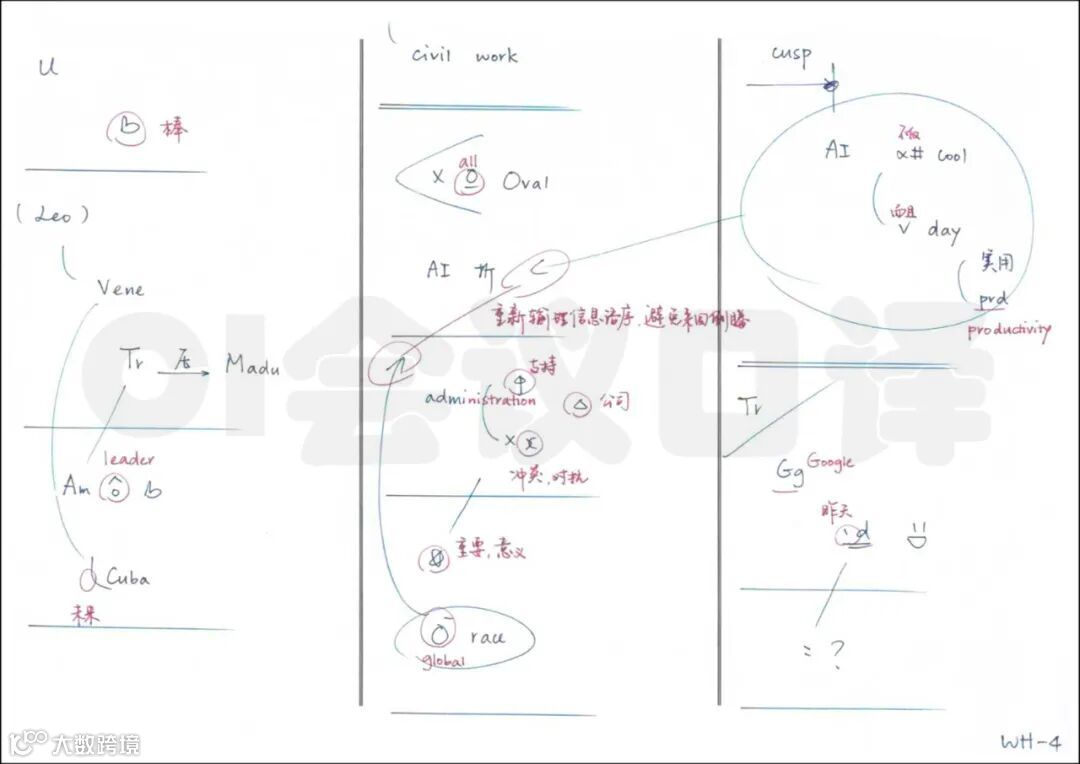 U
B 棒
(Leo)
Vene
Tr 居 Madu
leader
Am B
Cuba
未来
civil work
all
X Oval
AI 折
重新梳理信息语序，避免来回倒腾
支持
administration 公司
X
冲突，对抗
重要，意义
race
global
cusp
AI α# cool
而且
V day
实用
prd
productivity
Tr
Gg Google
昨天
d
= ?
OI会议口译
大数跨境
WH-4